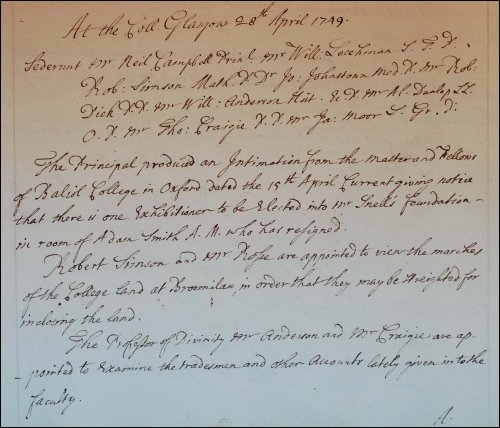 At the Coll. Glasgow 28th April 1749.
Sederunt Mr Neil Campbell Prinl. Mr Will: Leechman S. T. D.
Rob: Simson Math. P. Dr Jo: Johnstoun Med. P. Mr Rob:
Dick P. P. Mr Will: Anderson Hist. E. P. Mr Al: Dunlop LL.
O. P. Mr Tho: Craigie P. P. Mr Ja: Moor L. Gr. P:
The Principal produced an Intimation from the Master and Fellows
of Baliol College in Oxford dated the 15th April Current giving notice
that there is one Exhibitioner to be Elected into Mr Snell's foundation -
in room of Adam Smith A. M. who has resigned.
Robert Simson and Mr Rosse are appointed to view the marches
of the College land at Broomilaw, in order that they may be streighted for
inclosing the land.
The Professor of Divinity Mr Anderson and Mr Craigie are ap-
pointed to Examine the tradesmen and other Accounts lately given in to the
faculty.